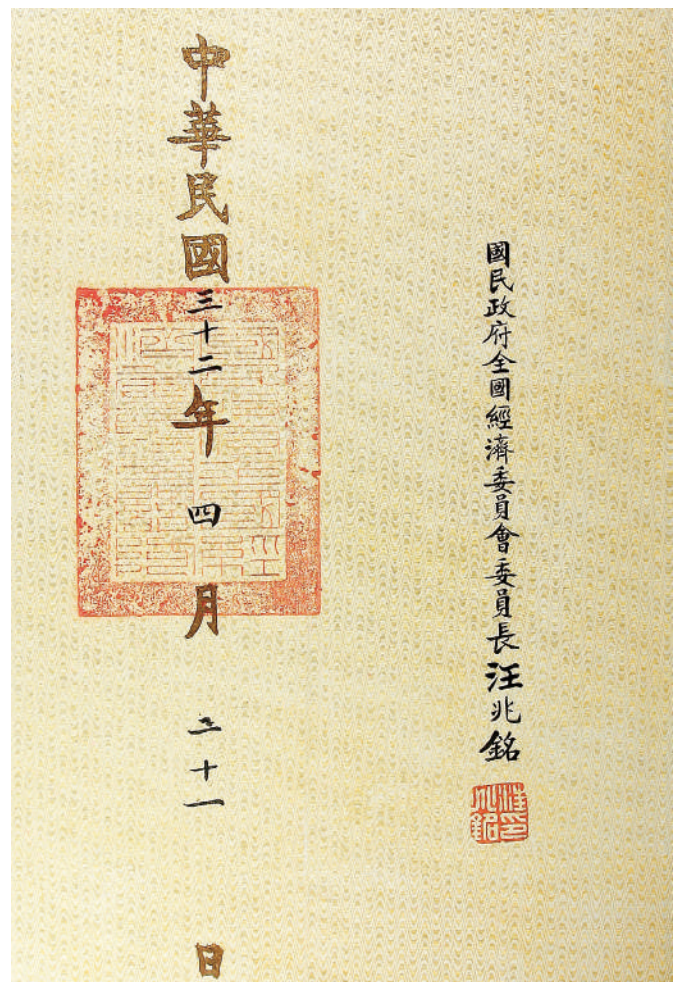 國民政府全國經濟委員會委員長汪兆銘
汪兆銘印
中華民國三十二年四月二十一日